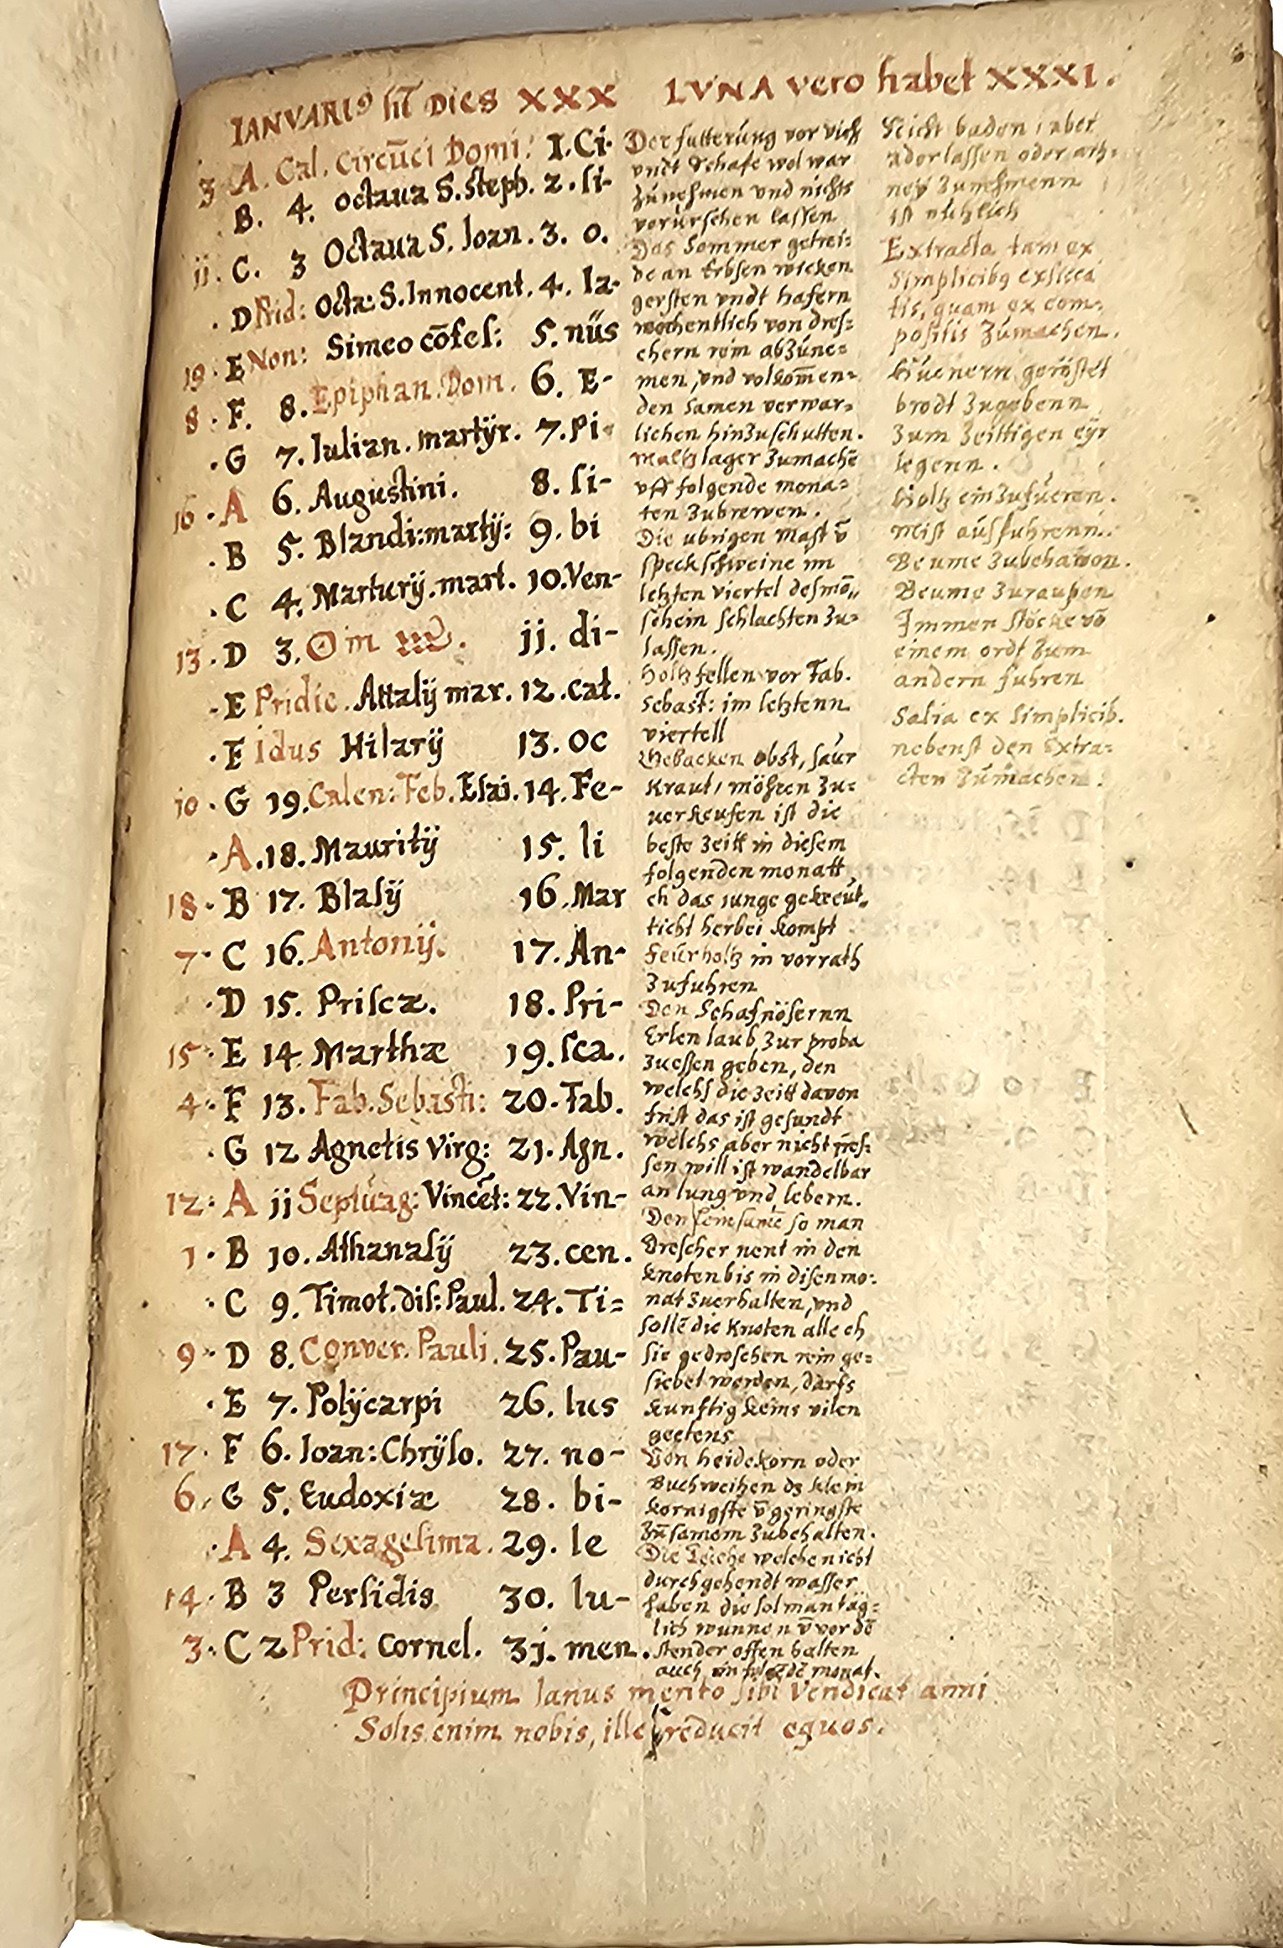 IANVARIꝰ ħt DIES XXX LVNA vero habet XXXI.
3. A. Cal. Circūci Domi: 1. Ci-
B. 4. octaua S. Steph. 2. si-
ii. C. 3 Octaua S. Ioan. 3. o.
. D Prid: Octa: S. Innocent. 4. Ia-
19. E Non: Simeo cōfes: 5. nüs
8. F. 8. Epiphan. Dom. 6. E-
. G 7. Iulian. martÿr. 7. pi-
16. A 6. Augustini. 8. si-
. B 5. Blandi: martÿ: 9. bi
. C 4. Marturÿ. mart. 10. Ven-
13. D 3. ☉ in ♒. ij. di-
. E Pridie. Attalÿ mar. 12. cat.
. F Idus Hilarÿ 13. oc
10. G 19. Calen: Feb. Esai. 14. Fe-
. A. 18. Mauritÿ 15. li
18. B 17. Blasÿ 16. Mar
7. C 16. Antonÿ. 17. An-
. D 15. Priscæ. 18. Pri-
15. E 14. Marthæ 19. sca.
4. F 13. Fab. Sebasti: 20. Fab.
. G 12 Agnetis Virg: 21. Agn.
12. A ij Septuag: Vincēt: 22. Vin-
1. B 10. Athanasÿ 23. cen.
. C 9. Timot. dis: Paul. 24. Ti=
9. D 8. Conver. Pauli. 25. Pau-
. E 7. Polÿcarpi 26. lus
17. F 6. Ioan: Chrÿso. 27. no-
6. G 5. Eudoxiæ 28. bi-
. A 4. Sexagesima. 29. le
14. B 3 Persidis 30. lu-
3. C 2 Prid: Cornel. 31. men.
Der futterung vor vieh
vndt Schafe wol war
zunehmen und nichts
verurschen lassen
Das Sommer getrei=
de an Erbsen wicken
gersten vndt hafern
wochentlich von dres=
chern rein abzune=
men, vnd volkom̄en=
den samen verwar=
lichen hinzuschutten.
Maltz lager zumachē
vff folgende mona=
ten zubrewen.
Die ubrigen Mast v̄
speckschweine im
letzten viertel des mō„
schein schlachten zu=
lassen.
Holtz fellen vor Fab.
Sebast: im letztenn
viertell
Gebacken obst, saur
kraut, möhren zu=
verkeufen ist die
beste zeitt in diesem
folgenden monatt
eh das iunge gekreut„
ticht herbei kompt
Feurholtz in vorrath
zufuhren
Den Schafnösernn
Erlen laub zur proba
zuessen geben, den
welchs die zeitt davon
frist das ist gesundt
welchs aber nicht fres=
sen will ist wandelbar
an lung vnd lebern.
Den leinsamē so man
Drescher nent in den
knoten bis in disen mo:
nat zuerhalten, vnd
sollē die knoten alle eh
sie gedroschen rein ge=
siebet werden, darfs
kunftig keins vilen
geetens
Von heidekorn oder
Buchweitzen dz klein
kornigste v̄ geringste
zū samem zubehalten.
Die Teiche welche nicht
durchgehendt wasser
haben die sol man täg=
lich wunnen v̄ vor dē
stender offen halten
auch im folgēdē monat.
Nicht baden, aber
aderlassen oder artz=
neÿ zunehmenn
ist nützlich
Extracta tam ex
Simplicibꝰ exsicca
tis, quam ex com=
positis zumachen.
Hüenern geröstet
brodt zugebenn
zum zeittigen eÿr
legenn.
Holtz einzufueren.
Mist ausfuhrenn.
Beume zubehawen.
Beume zuraupen
Immen stöcke vō
einem ordt zum
andern fuhren
Salia ex simplicib.
nebenst den Extra=
cten zumachen.
Principium Ianus merito sibi vendicat anni
Solis enim nobis, ille reducit equos.